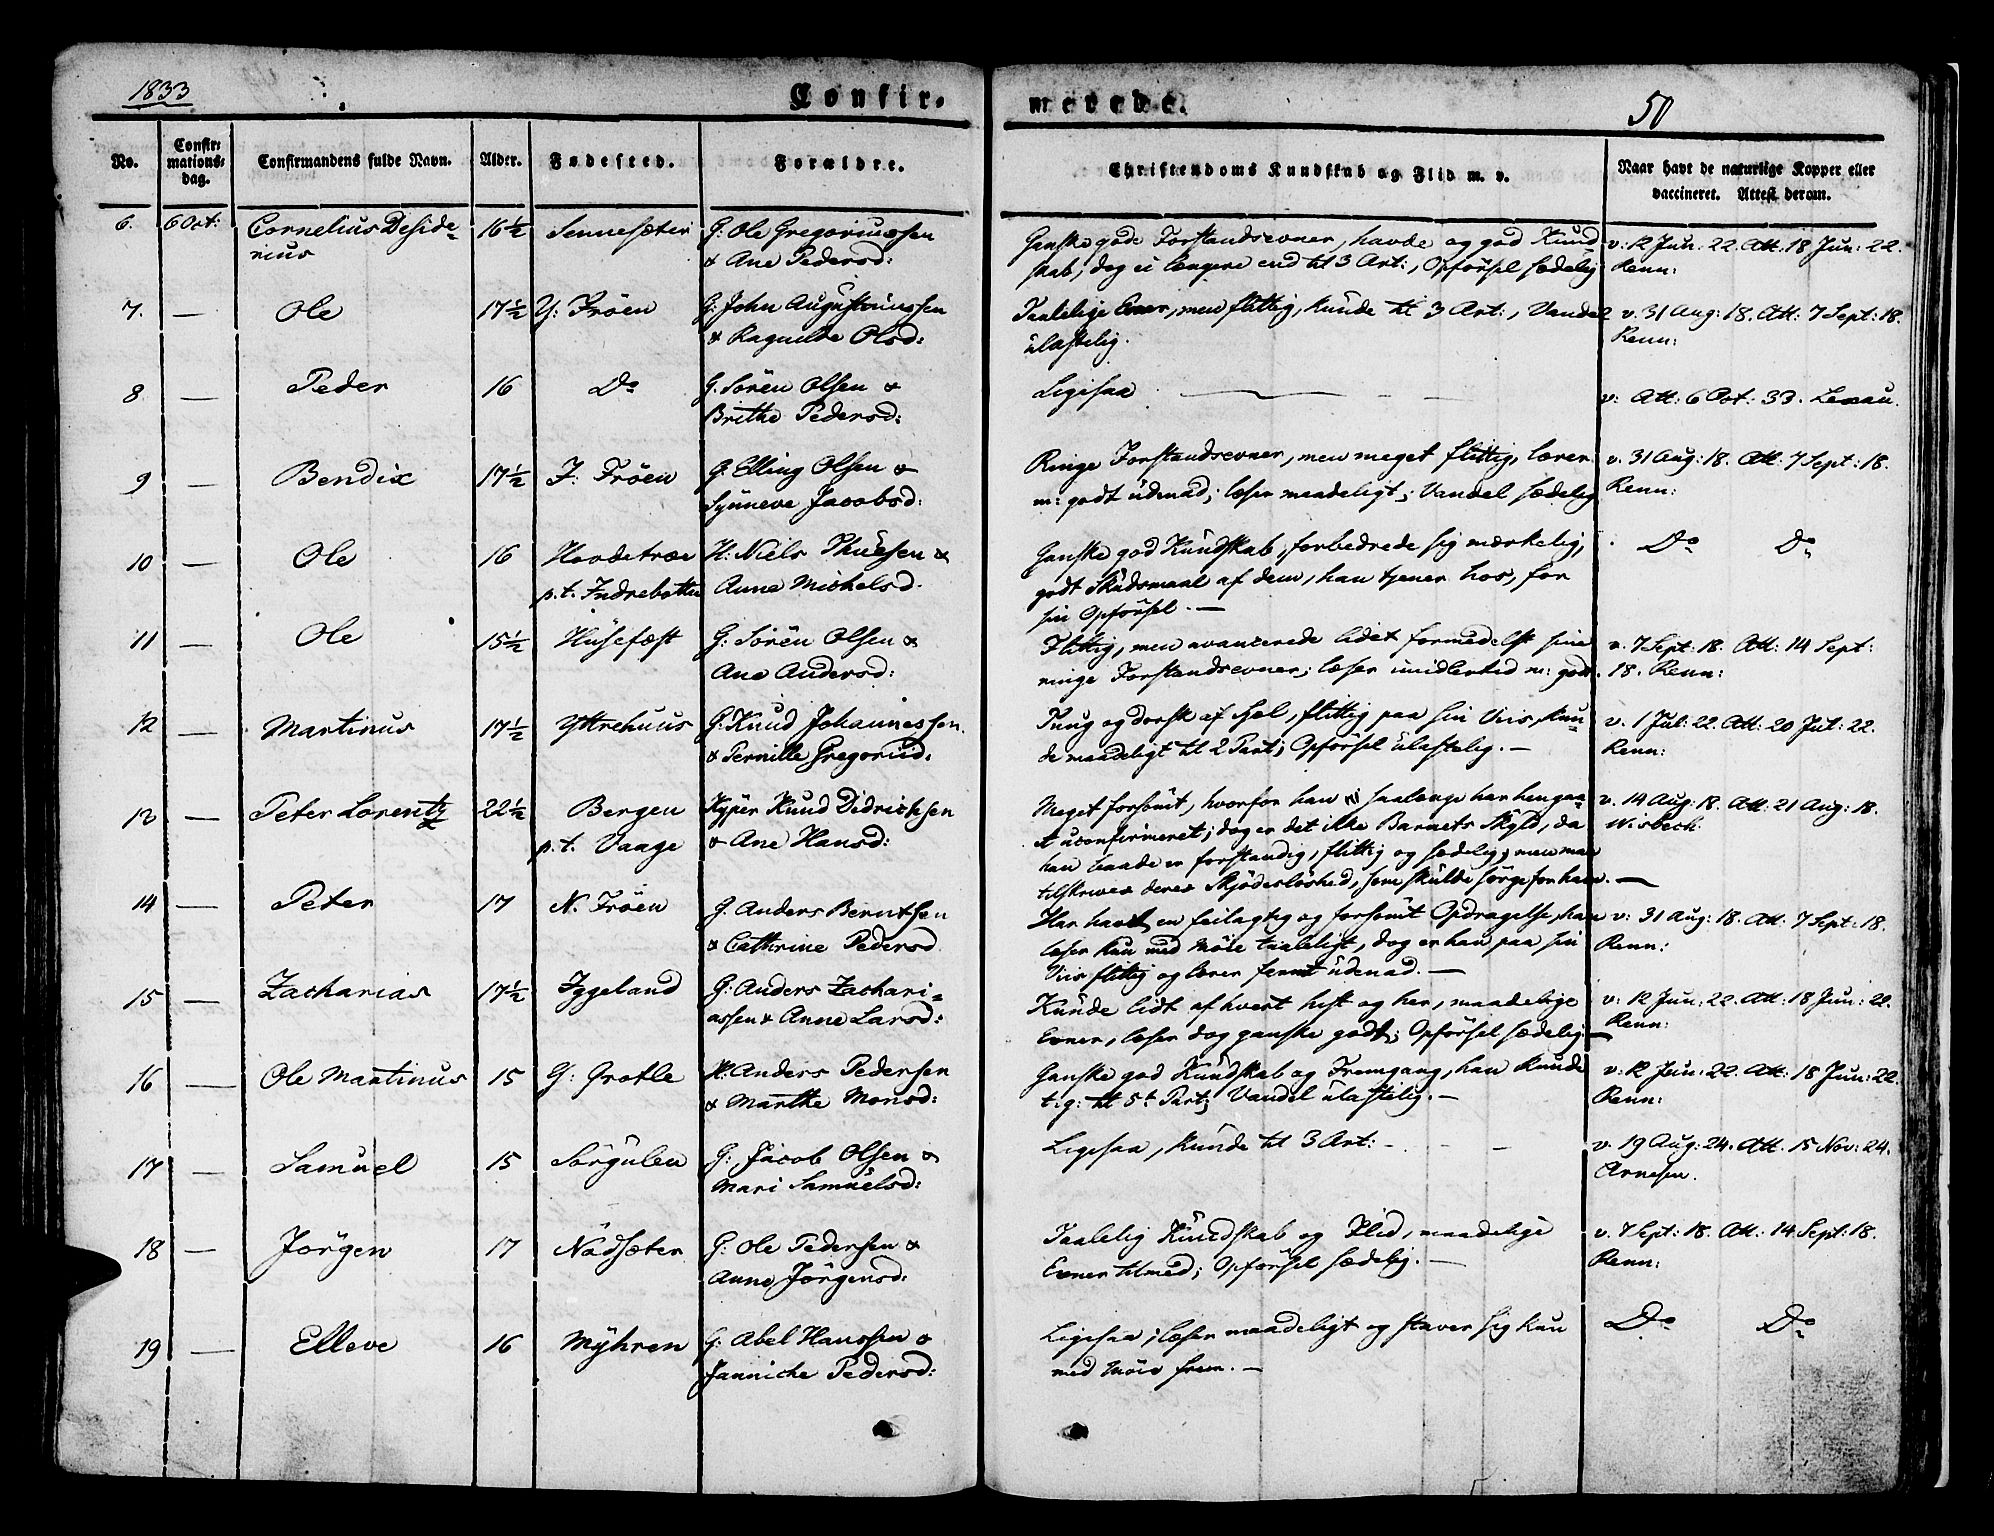 1833
Confir-
merede.
50
No.
Confir-
mations-
dag.
Confirmandens fulde Navn.
Alder.
Fødested.
Forældre.
Christendoms Kundskab og Flid m. v.
Naar havt de naturlige Kopper eller
vaccineret. Attest derom.
6. 6 Oct: Cornelius Deside- 16½ Sennesæter G: Ole Gregoriussen
rius & Ane Pedersd:
Ganske gode Forstandsevner, havde og god Kund-
skab, dog ei længere end til 3 Art:, Opførsel sædelig
v: 12 Jun: 22. Att: 18 Jun: 22.
Renn:
7. — Ole 17½ Y: Fröen G: John Augustinussen
& Ragnilde Olsd:
Taalelige Evner, men flittig, kunde til 3 Art:, Vandel
ulastelig.
v. 31 Aug: 18. Att: 7 Sept: 18.
Renn:
8 — Peder 16 Do G. Sören Olsen &
Brithe Pedersd:
Ligesaa — —
v: Att: 6 Oct: 33.
9 — Bendix 17½ I: Fröen G: Elling Olsen &
Synneve Jacobsd:
Ringe Forstandsevner, men meget flittig, lærer
m: godt udenad; læser maadeligt; Vandel sædelig
v. 31 Aug: 18. Att: 7 Sept: 18.
Renn:
10 — Ole 16 Hovdetræe H: Niels Thuesen &
p.t. Indrebotten Anne Michelsd.
Ganske god Kundskab, forbedrede sig mærkelig,
godt Skudsmaal af dem, han tjener hos, for
sin Opførsel. —
Do Do
11 — Ole 15½ Husefæst G: Sören Olsen &
Ane Andersd:
Flittig, men avancerede lidet formedelst sine
ringe Forstandsevner; læser imidlertid m: godt.
v. 7 Sept: 18. Att: 14 Sept:
18. Renn:
12 — Martinus 17½ Yttrehuus G: Knud Johannessen
& Pernille Gregorid.
Tung og dorsk af Sjel, flittig paa sin Viis, kun-
de maadeligt til 2 Part; Opførsel ulastelig. —
v. 1 Jul: 22. Att: 20 Jul: 22.
Renn:
13 — Peter Lorentz 22½ Bergen Kyper Knud Didrichsen
p.t. Vaage & Ane Hansd:
Meget forsömt, hvorfor han saalænge har hengaa-
et uconfirmeret; dog er det ikke Barnets Skyld, da
han baade er forstandig, flittig og sædelig; men maa
tilskrives deres Skjödeslöshed, som skulde sörge for ham. —
v. 14 Aug: 18. Att: 21 Aug: 18.
Wisbech.
14 — Peter 17 N. Fröen G. Anders Berntsen
& Cathrine Pedersd.
Har havt en feilagtig og forsömt Opdragelse, han
læser kun med Möie taaleligt, dog er han paa sin
Viis flittig og lærer fermt udenad. —
v: 31 Aug: 18. Att: 7 Sept: 18.
Renn:
15 — Zacharias 17½ Iggeland G: Anders Zachari-
assen & Anne Larsd:
Kunde lidt af hvert hist og her, maadelige
Evner, læser dog ganske godt; Opførsel sædelig. —
v: 12 Jun: 22. Att: 18 Jun: 22.
Renn:
16 — Ole Martinus 15 G: Grotle H: Anders Pedersen
& Marthe Monsd:
Ganske god Kundskab og Fremgang, han kunde
t.g: til 5te Part; Vandel ulastelig. —
v: 12 Jun: 22. Att: 18 Jun: 22.
Renn:
17 — Samuel 15 Sörgulen G: Jacob Olsen &
Mari Samuelsd:
Ligesaa, kunde til 3 Art: — —
v. 19 Aug: 24. Att. 15 Nov: 24.
Arnesen.
18 — Jörgen 17 Nödsæter G: Ole Pedersen &
Anne Jörgensd:
Taalelig Kundskab og Flid, maadelige
Evner tilmed; Opførsel sædelig. —
v. 7 Sept: 18. Att: 14 Sept: 18.
Renn:
19 — Elleve 16 Myhren G: Abel Hanssen &
Janniche Pedersd:
Ligesaa; læser maadeligt og staver sig kun
med Möie frem. —
Do Do